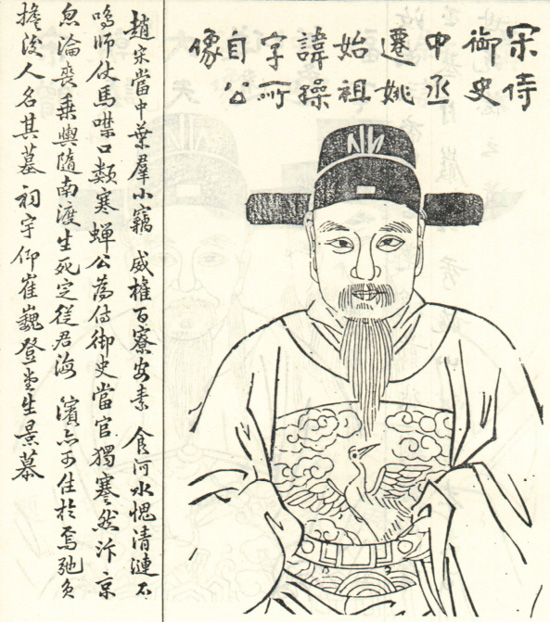 宋侍
御史
中丞
遷姚
始祖
諱操
字所
自公
像
趙宋當中葉羣小竊 威權百寮安素 食河水愧清漣不
鳴師仗馬噤口類寒蟬公為侍御史當官獨謇然汴京
忽淪喪乘輿隨南渡生死定從君海 濱亦可住於焉弛負
擔後人名其墓祠宇仰崔巍登堂生景慕